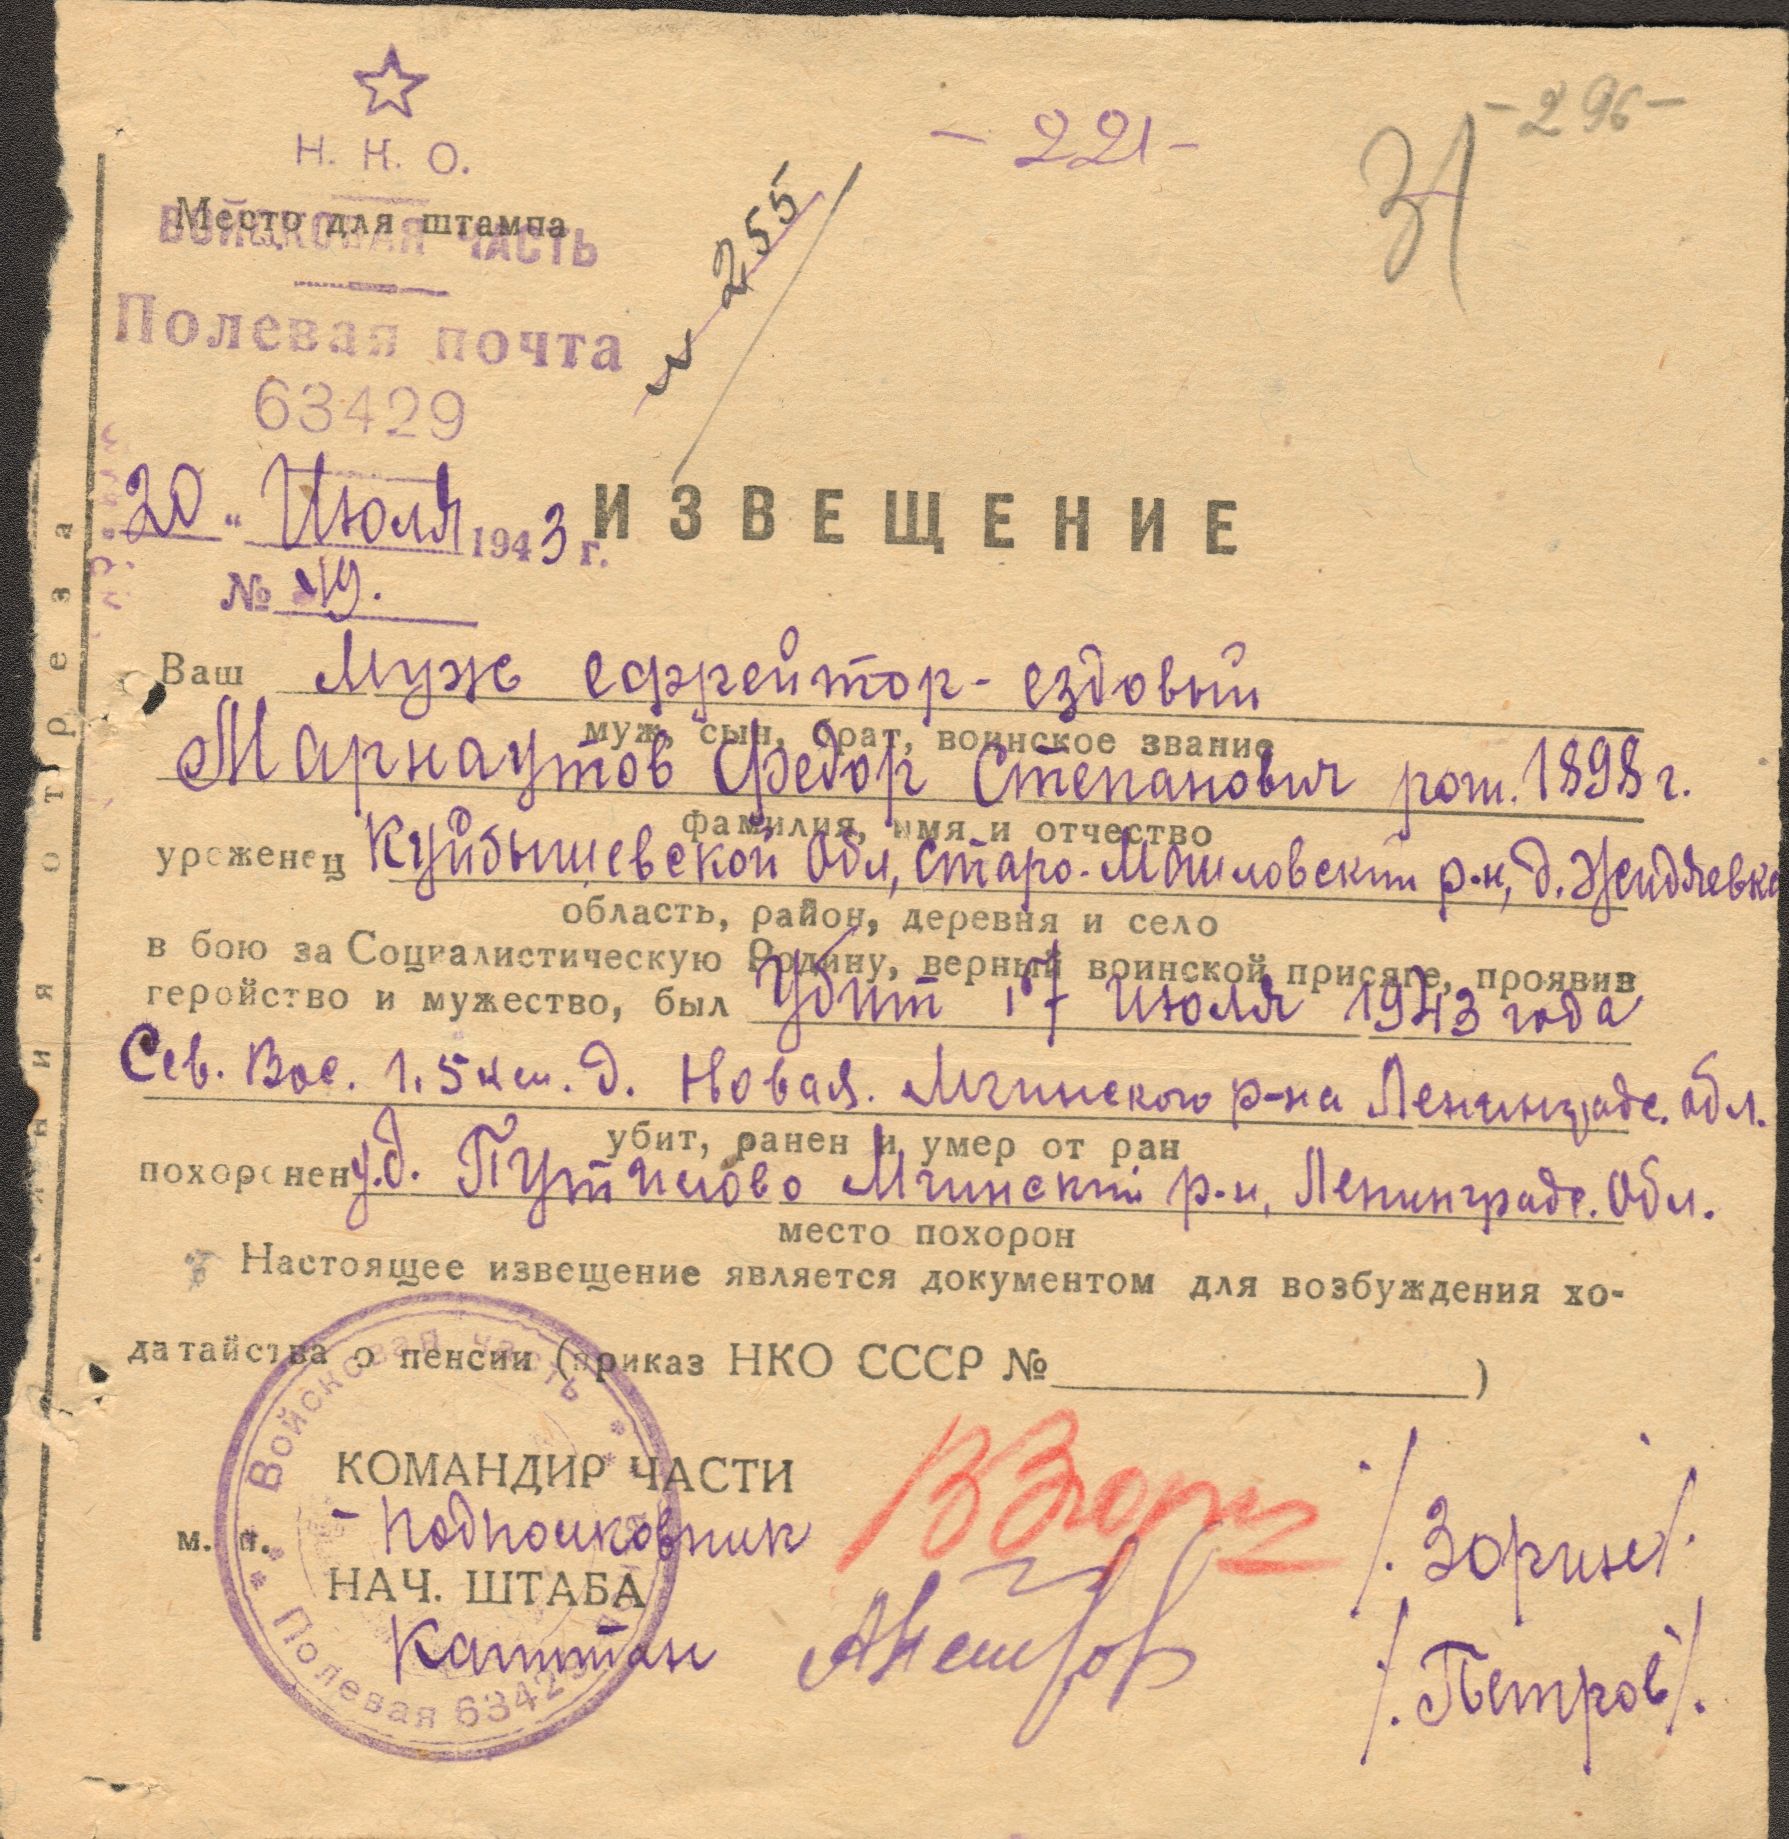 Н. К. О.
Место для штампа
ВОЙСКОВАЯ ЧАСТЬ
Полевая почта
63429
- 221 -
- 296 -
31
255
20 " Июля 1943 г.
ИЗВЕЩЕНИЕ
№ 49.
Ваш муж ефрейтор - ездовый
муж, сын, брат, воинское звание
Марнаутов Федор Степанович рож. 1898 г.
фамилия, имя и отчество
уроженец Куйбышевской Обл, Старо-Майновский р-н, д. Жидяевка
область, район, деревня и село
в бою за Социалистическую Родину, верный воинской присяге, проявив
геройство и мужество, был Убит 17 июля 1943 года
Сев. Вос. 1.5 км. д. Новая. Мгинского р-на Ленинградс. Обл.
убит, ранен и умер от ран
похоронен у.д. Путилово Мгинский р-н, Ленинградс. Обл.
место похорон
Настоящее извещение является документом для возбуждения хо-
датайства о пенсии (приказ НКО СССР № )
КОМАНДИР ЧАСТИ
- Подполковник /. Зорин /.
м. п.
НАЧ. ШТАБА
Капитан /. Петров /.
Войсковая часть
Полевая 63429
линия отреза